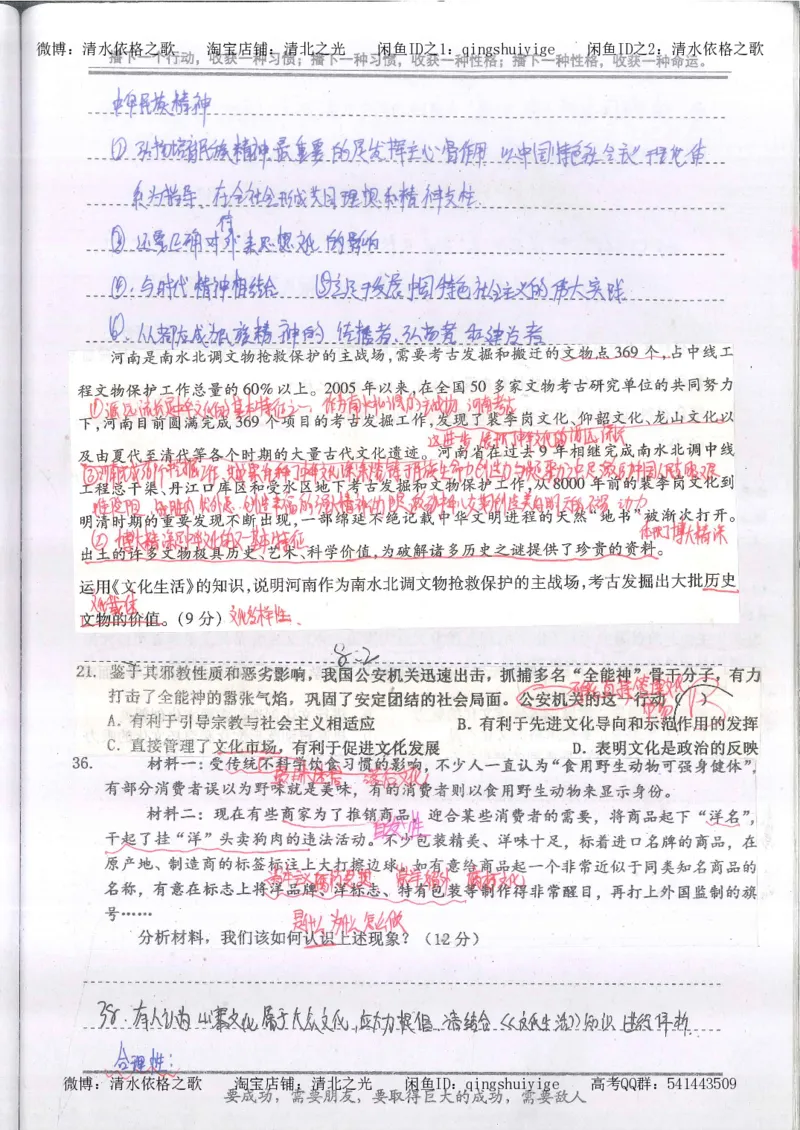 微博：清水依格之歌 淘宝店铺：清北之光 闲鱼ID之1：qingshuiyige 闲鱼ID之2：清水依格之歌
播下一个行动，收获一种习惯；播下一种习惯，收获一种性格；播下一种性格，收获一种命运。
中华民族精神
① 弘扬培育民族精神最重要的是发挥主心骨作用 以中国特色社会主义理论体
系为指导、在全社会形成共同理想和精神支柱.
③ 还要正确对待外来思想文化的影响
④、与时代精神相结合 ⑤立足于发展中国特色社会主义的伟大实践
⑥、人人都应成为民族精神的 传播者、弘扬者和建设者
河南是南水北调文物抢救保护的主战场,需要考古发掘和搬迁的文物点 369 个,占中线工
程文物保护工作总量的 60%以上。2005 年以来,在全国 50 多家文物考古研究单位的共同努力
①源远流长是中华文化的基本特征之一，作为南水北调的主战场 河南考古
下,河南目前圆满完成 369 个项目的考古发掘工作,发现了裴李岗文化、仰韶文化、龙山文化以
及由夏代至清代等各个时期的大量古代文化遗迹。河南省在过去 9 年相继完成南水北调中线
工程总干渠、丹江口库区和受水区地下考古发掘和文物保护工作,从 8000 年前的裴李岗文化到
明清时期的重要发现不断出现,一部绵延不绝记载中华文明进程的天然“地书”被渐次打开。
② 博大精深是中华文化的又一基本特征 体现了博大精深
出土的许多文物极具历史、艺术、科学价值,为破解诸多历史之谜提供了珍贵的资料。
运用《文化生活》的知识,说明河南作为南水北调文物抢救保护的主战场,考古发掘出大批历史
文化载体
文物的价值。(9 分) 文化多样性、
8-2
21. 鉴于其邪教性质和恶劣影响，我国公安机关迅速出击，抓捕多名“全能神”骨干分子，有力
打击了全能神的嚣张气焰，巩固了安定团结的社会局面。公安机关的这一行动（ ）
A. 有利于引导宗教与社会主义相适应 B. 有利于先进文化导向和示范作用的发挥
C. 直接管理了文化市场，有利于促进文化发展 D. 表明文化是政治的反映
36. 材料一：受传统不科学饮食习惯的影响，不少人一直认为“食用野生动物可强身健体”，
落后文化
有部分消费者误以为野味就是美味，有的消费者则以食用野生动物来显示身份。
材料二：现在有些商家为了推销商品，迎合某些消费者的需要，将商品起下“洋名”，
干起了挂“洋”头卖狗肉的违法活动。不少包装精美、洋味十足，标着进口名牌的商品，在
原产地、制造商的标签标注上大打擦边球，如有意给商品起一个非常近似于同类知名商品的
名称，有意在标志上将洋品牌、洋标志、洋有包装等制作得非常醒目，再打上外国监制的旗
号……
是什么 为什么 怎么做
分析材料，我们该如何认识上述现象？（12 分）
38. 有人认为山寨文化属于大众文化，应大力提倡. 请结合《文化生活》知识 进行评析.
合理性：
微博：清水依格之歌 淘宝店铺：清北之光 闲鱼ID：qingshuiyige 高考QQ群：541443509
要成功，需要朋友，要取得巨大的成功，需要敌人